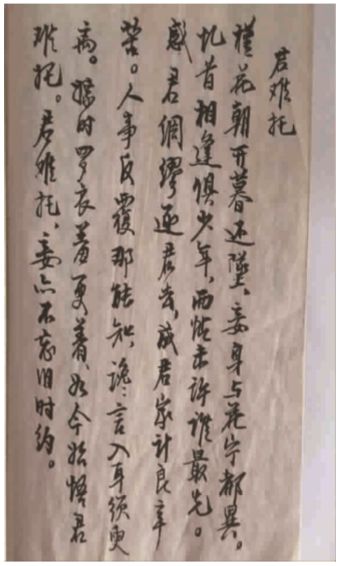 君难托
槿花朝开暮还墜、妾身与花宁都異。
忆昔相逢俱少年，两情未许谁最先。
感君綢繆逐君去，成君家计良辛
苦。人事反覆那能知，谗言入耳须臾
离。嫁时罗衣羞更着，如今始悟君
难托。君难托、妾亦不忘旧时约。